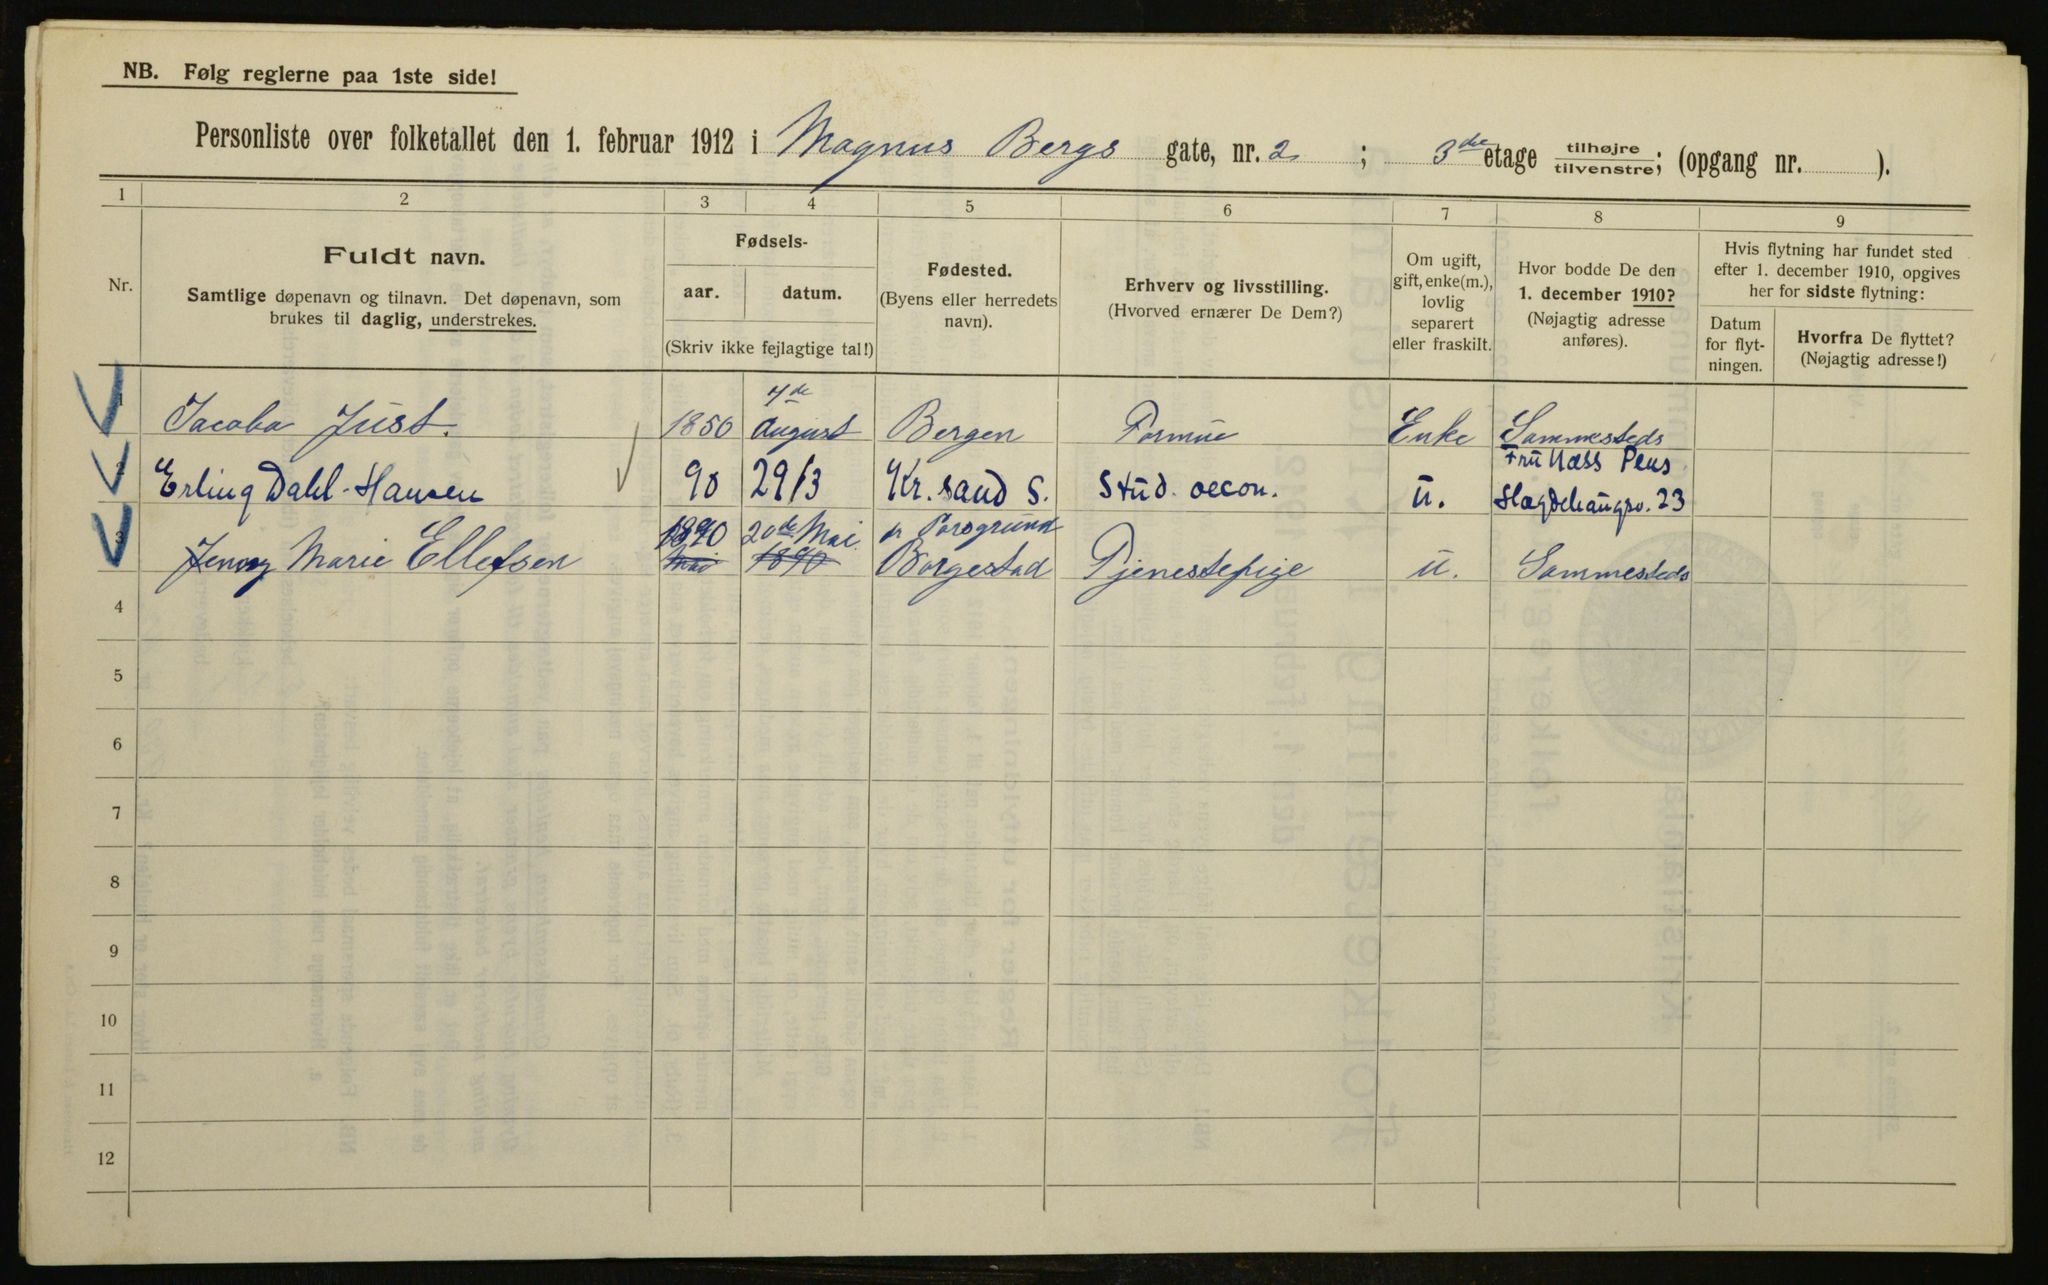 NB. Følg reglerne paa 1ste side!
Personliste over folketallet den 1. februar 1912 i Magnus Bergs gate, nr. 2 ; 3de etage tilhøjre tilvenstre; (opgang nr. ).
1 2 3 4 5 6 7 8 9
Nr.
Fuldt navn.
Samtlige døpenavn og tilnavn. Det døpenavn, som
brukes til daglig, understrekes.
Fødsels-
aar. datum.
(Skriv ikke fejlagtige tal!)
Fødested.
(Byens eller herredets
navn).
Erhverv og livsstilling.
(Hvorved ernærer De Dem?)
Om ugift,
gift, enke(m.),
lovlig
separert
eller fraskilt.
Hvor bodde De den
1. december 1910?
(Nøjagtig adresse
anføres).
Hvis flytning har fundet sted
efter 1. december 1910, opgives
her for sidste flytning:
Datum
for flyt-
ningen.
Hvorfra De flyttet?
(Nøjagtig adresse!)
4de
1 Jacoba Just. 1850 August Bergen Formue Enke Sammesteds
Frü Næss Pens.
2 Erling Dahl-Hansen 90 29/3 Kr.sand S. Stüd. oecon. ü. Hægdehaugsv. 23
1890 20de Mai Porsgrund
3 Jenny Marie Ellefsen Mai 1890 Borgestad Tjenestepige ü. Sammesteds
4
5
6
7
8
9
10
11
12